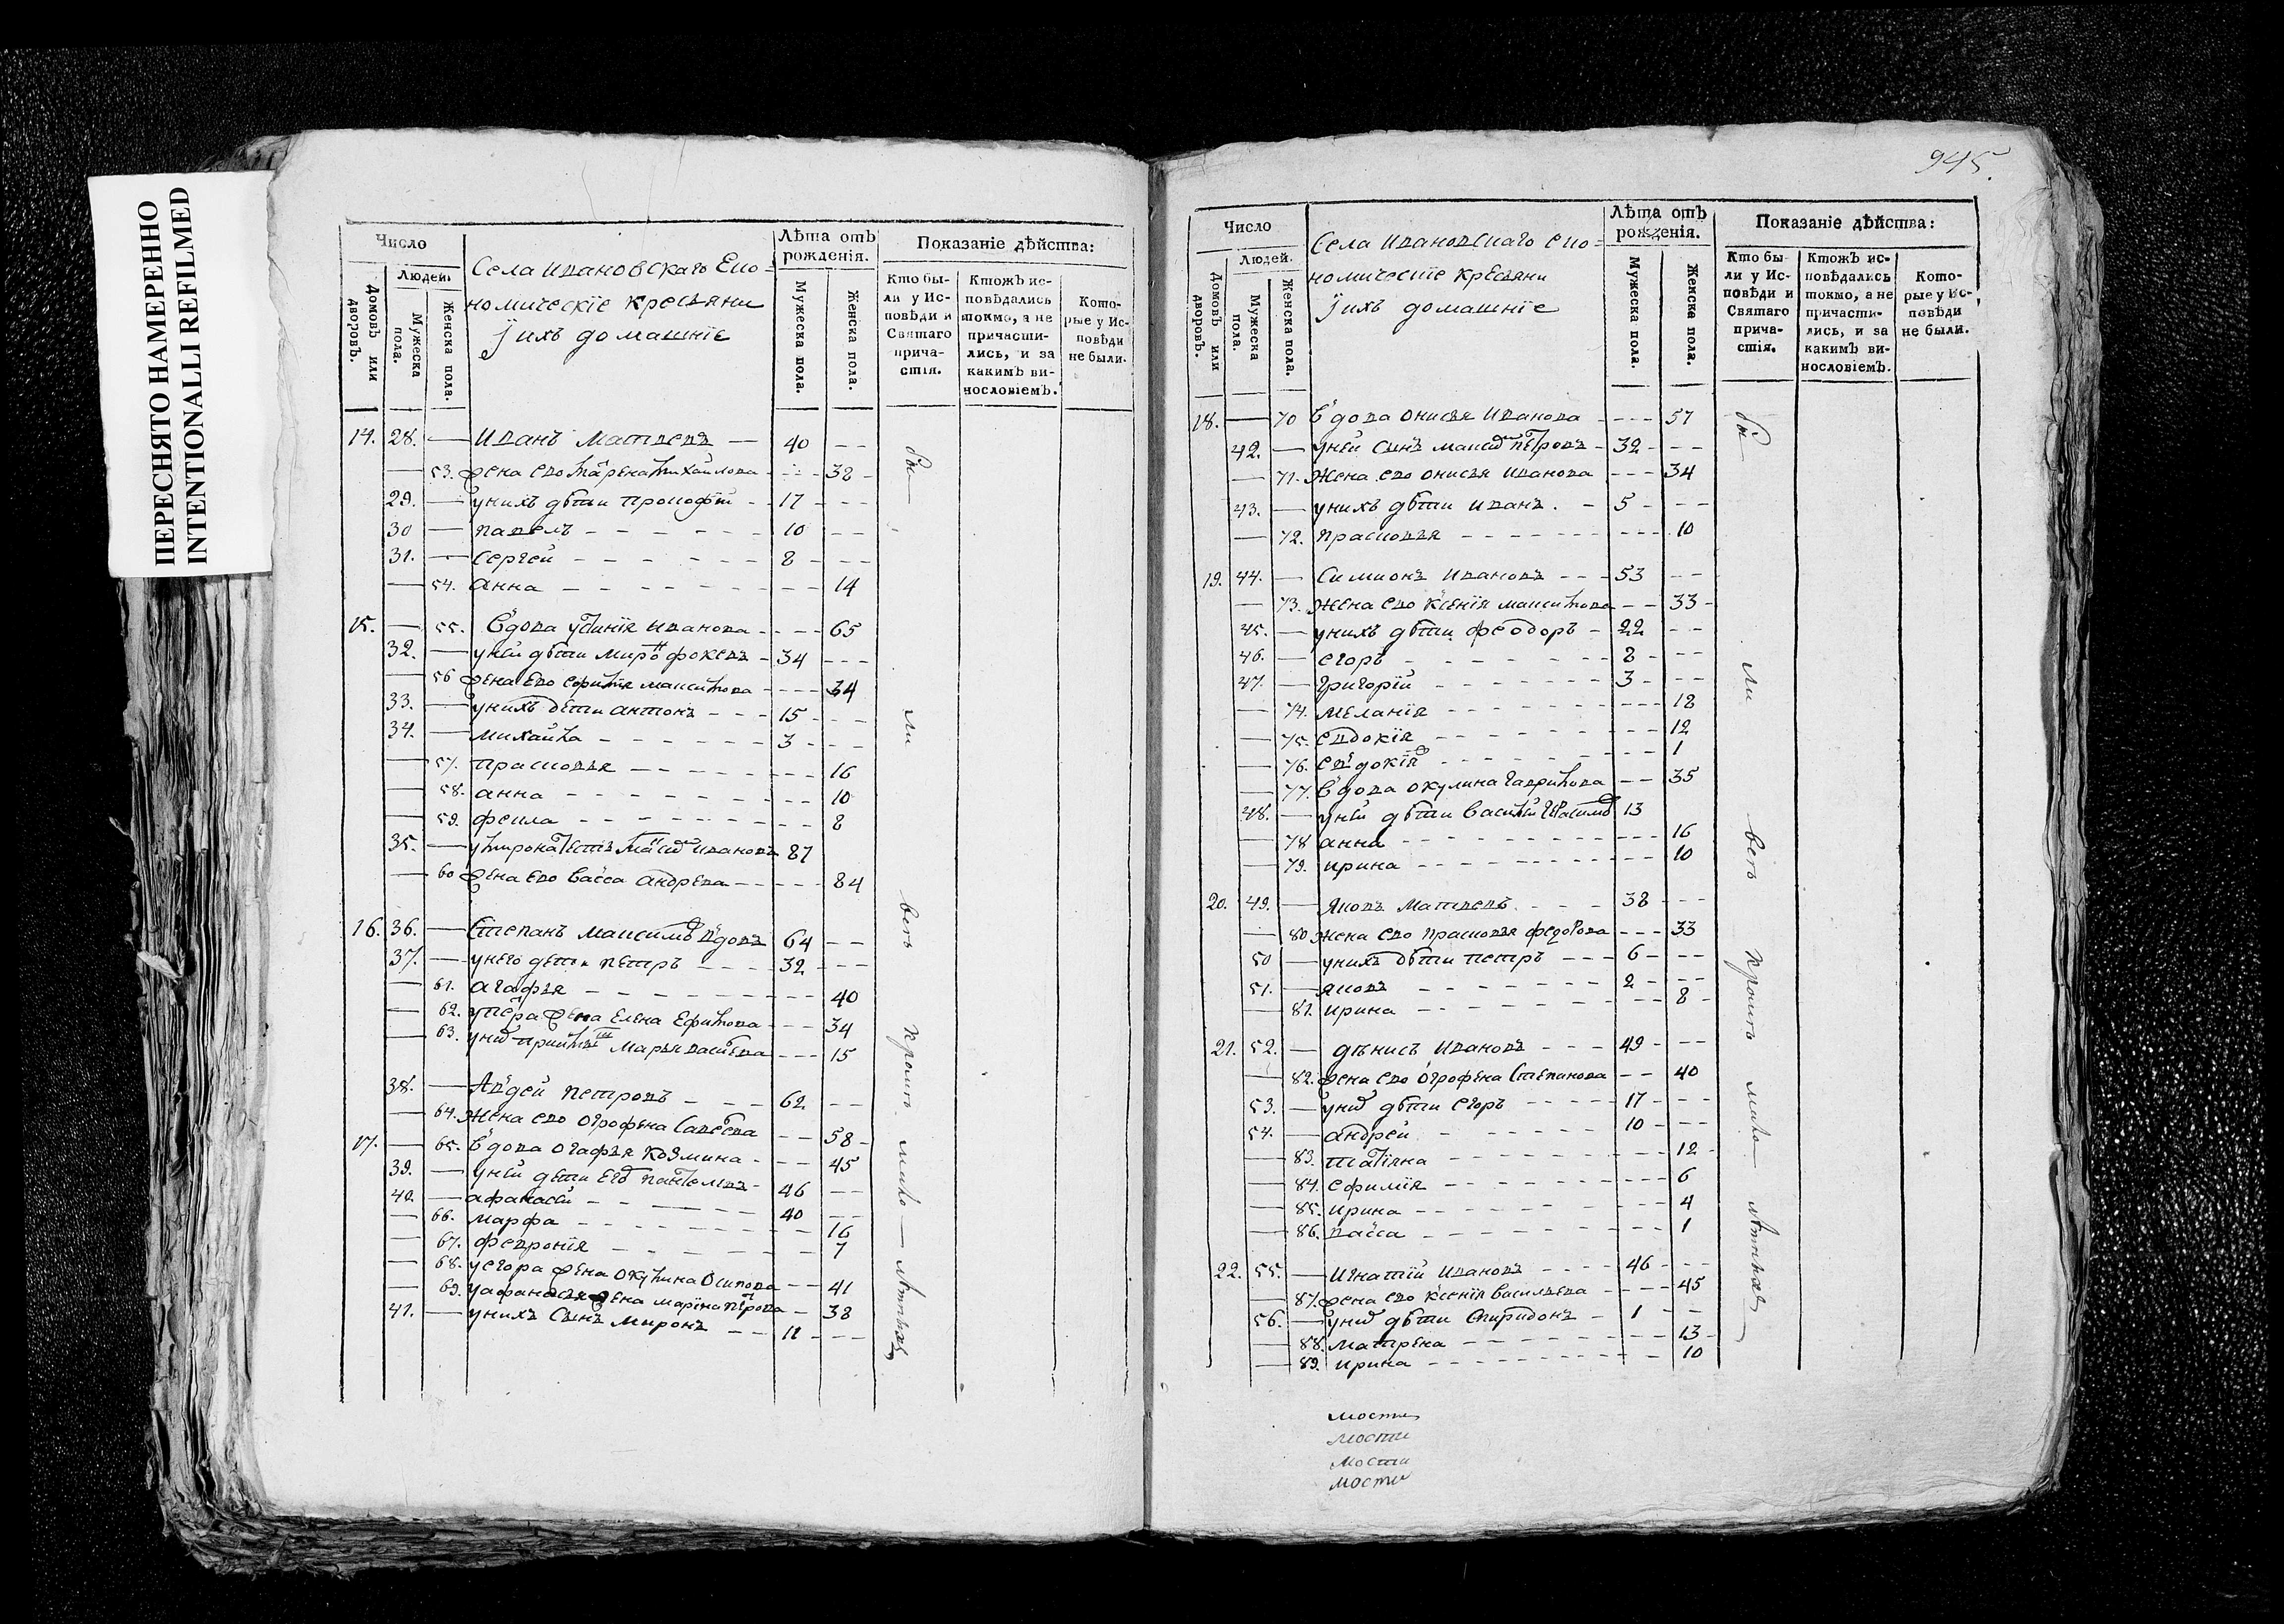 ПЕРЕСНЯТО НАМЕРЕННО
INTENTIONALLI REFILMED
Число
Людей.
Домовъ или дворовъ.
Мужеска пола.
Женска пола.
Села Ивановскаго Еко=
номическїе кресьяни
Їихъ домашнїе
Лѣта отъ рожденїя.
Мужеска пола.
Женска пола.
Показанїе дѣйства:
Кто бы-
ли у Ис-
повѣди и
Святаго
прича-
стїя.
Ктожъ ис-
повѣдались
токмо, а не
причасти-
лись, и за
какимъ ви-
нословїемъ.
Кото-
рые у Ис-
повѣди
не были.
14. 28. — Иванъ Матвевъ — 40 --
— 53. жена ево Марена Михайлова --- 38
29. — унихъ дѣти Прокофїй - 17 -
30 — павелъ - - - 10 --
31. — Сергей - - - 8 --
— 54. анна - - - 14
15. — 55. Вдова Иванова --- 65
32. — уней дѣти Миронъ фокевъ - 34 ---
— 56 жена Ево Максимова --- 34
33. — унихъ дѣти антонъ --- 15 --
34. — михайла --- 3 --
— 57. прасковья --- 16
— 58. анна --- 10
— 59. фекла --- 8
35. — уМирона тесть Ивановъ 87
— 60 жена Ево Васса андреева --- 84
16. 36. — Степанъ Максимовъ вдовъ 64 --
37. — унего дети петръ --- 32 ---
— 61. агафья --- 40
— 62. упетра жена Елена Ефимова --- 34
— 63. Марья --- 15
38. — Авдей петровъ --- 62 --
— 64. Жена ево огрофена Савеева --- 58
17. — 65. Вдова огафья козмина --- 45
39. — уней дети Его 46 --
40. — афанасей --- 40 --
— 66. марфа --- 16
— 67. февронїя --- 7
— 68. уегора жена окулина Осипова --- 41
— 69. уафанасья жена марїна петрова - 38
41. — унихъ Сынъ миронъ --- 11 ---
бы
ли
всего
кромѣ
мало —
лѣтныхъ
945.
Число
Людей.
Домовъ или дворовъ.
Мужеска пола.
Женска пола.
Села Ивановскаго еко=
номическїе кресьяни
Їихъ домашнїе
Лѣта отъ рожденїя.
Мужеска пола.
Женска пола.
Показанїе дѣйства:
Кто бы-
ли у Ис-
повѣди и
Святаго
прича-
стїя.
Ктожъ ис-
повѣдались
токмо, а не
причасти-
лись, и за
какимъ ви-
нословїемъ.
Кото-
рые у Ис-
повѣди
не были.
18. — 70 Вдова онисья Иванова --- 57
42. — уней Сынъ петровъ - 32 ---
— 71. Жена ево онисья Иванова --- 34
43. — унихъ дѣти Иванъ - 5 ---
— 72. прасковья --- 10
19. 44. — Симионъ Ивановъ --- 53 --
— 73. жена ево ксенїя максимова --- 33
45. — унихъ дѣти феодоръ - 22 --
46. — егоръ --- 8 --
47. — григорїй --- 3 ---
— 74. меланїя --- 18
— 75. евдокїя --- 12
— 76. евдокїя --- 1
— 77. Вдова окулина гаврилова --- 35
48. — уней дѣти Василий 13
— 78 анна --- 16
— 79. ирина --- 10
20. 49. — яковъ матвевъ --- 38 ---
— 80 жена ево прасковья федорова --- 33
50 — унихъ дѣти петръ --- 6 ---
51. — яковъ --- 2 --
— 81. ирина --- 8
21. 52. — дѣнисъ Ивановъ --- 49 ---
— 82. жена ево огрофена Степанова --- 40
53. — дѣти егоръ --- 17 --
54. — андрей --- 10 ---
— 83. татїяна --- 12
— 84. ефимїя --- 6
— 85. ирина --- 4
— 86. васса --- 1
22. 55. — Игнатїй Ивановъ --- 46 ---
— 87. жена ево ксенїя васильева --- 45
56. — дѣти Спиридонъ - 1 --
— 88. матрена --- 13
— 89. ирина --- 10
бы
ли
всего
кромѣ
мало
лѣтныхъ
мости
мости
мости
мости